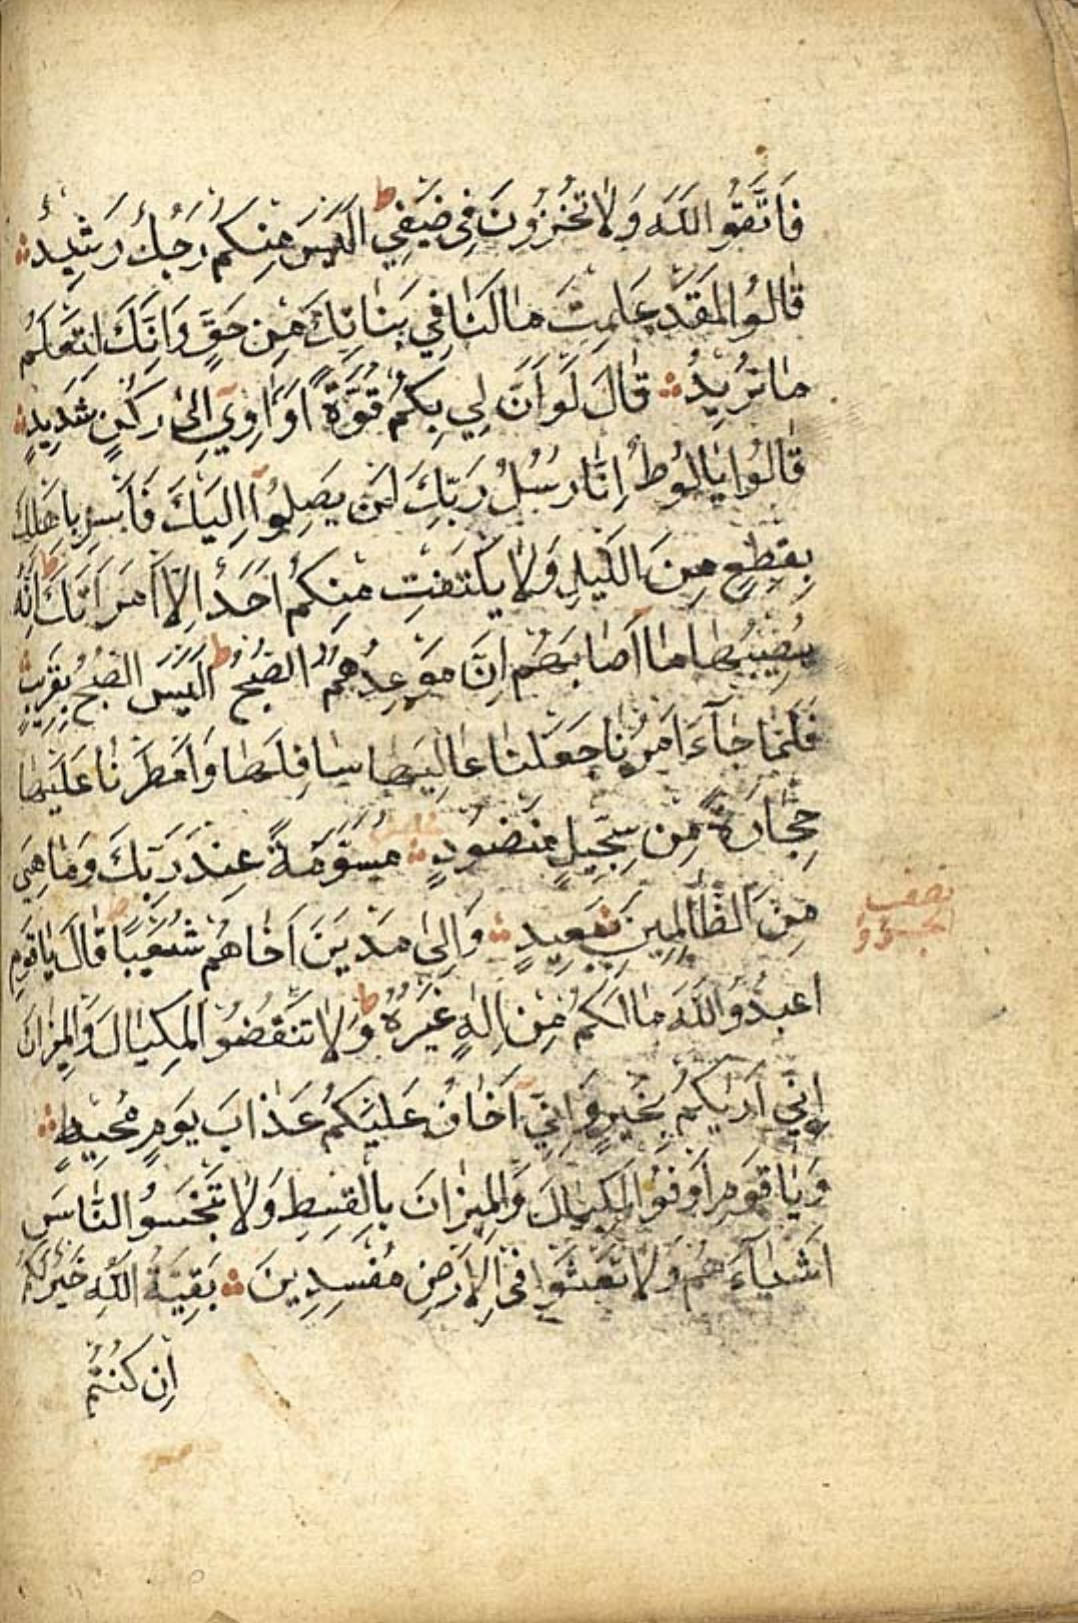 فَاتَّقُوا اللّٰهَ وَلَا تُخْزُونِ فِي ضَيْفِي ط اَلَيْسَ مِنْكُمْ رَجُلٌ رَشِيدٌ
قَالُوا لَقَدْ عَلِمْتَ مَا لَنَا فِي بَنَاتِكَ مِنْ حَقٍّ وَاِنَّكَ لَتَعْلَمُ
مَا نُرِيدُ قَالَ لَوْ اَنَّ لِي بِكُمْ قُوَّةً اَوْ اٰوِي اِلٰى رُكْنٍ شَدِيدٍ
قَالُوا يَا لُوطُ اِنَّا رُسُلُ رَبِّكَ لَنْ يَصِلُوا اِلَيْكَ فَاَسْرِ بِاَهْلِكَ
بِقِطْعٍ مِنَ اللَّيْلِ وَلَا يَلْتَفِتْ مِنْكُمْ اَحَدٌ اِلَّا امْرَاَتَكَ ط اِنَّهُ
مُصِيبُهَا مَا اَصَابَهُمْ اِنَّ مَوْعِدَهُمُ الصُّبْحُ ط اَلَيْسَ الصُّبْحُ بِقَرِيبٍ
فَلَمَّا جَآءَ اَمْرُنَا جَعَلْنَا عَالِيَهَا سَافِلَهَا وَاَمْطَرْنَا عَلَيْهَا
حِجَارَةً مِنْ سِجِّيلٍ مَنْضُودٍ مُسَوَّمَةً عِنْدَ رَبِّكَ وَمَا هِيَ
مِنَ الظَّالِمِينَ بِبَعِيدٍ وَاِلٰى مَدْيَنَ اَخَاهُمْ شُعَيْبًا ط قَالَ يَا قَوْمِ
نصف
الحزب
اعْبُدُوا اللّٰهَ مَا لَكُمْ مِنْ اِلٰهٍ غَيْرُهُ ط وَلَا تَنْقُصُوا الْمِكْيَالَ وَالْمِيزَانَ
اِنِّي اَرٰيكُمْ بِخَيْرٍ وَاِنِّي اَخَافُ عَلَيْكُمْ عَذَابَ يَوْمٍ مُحِيطٍ
وَيَا قَوْمِ اَوْفُوا الْمِكْيَالَ وَالْمِيزَانَ بِالْقِسْطِ وَلَا تَبْخَسُوا النَّاسَ
اَشْيَآءَهُمْ وَلَا تَعْثَوْا فِي الْاَرْضِ مُفْسِدِينَ بَقِيَّةُ اللّٰهِ خَيْرٌ لَكُمْ
اِنْ كُنْتُمْ